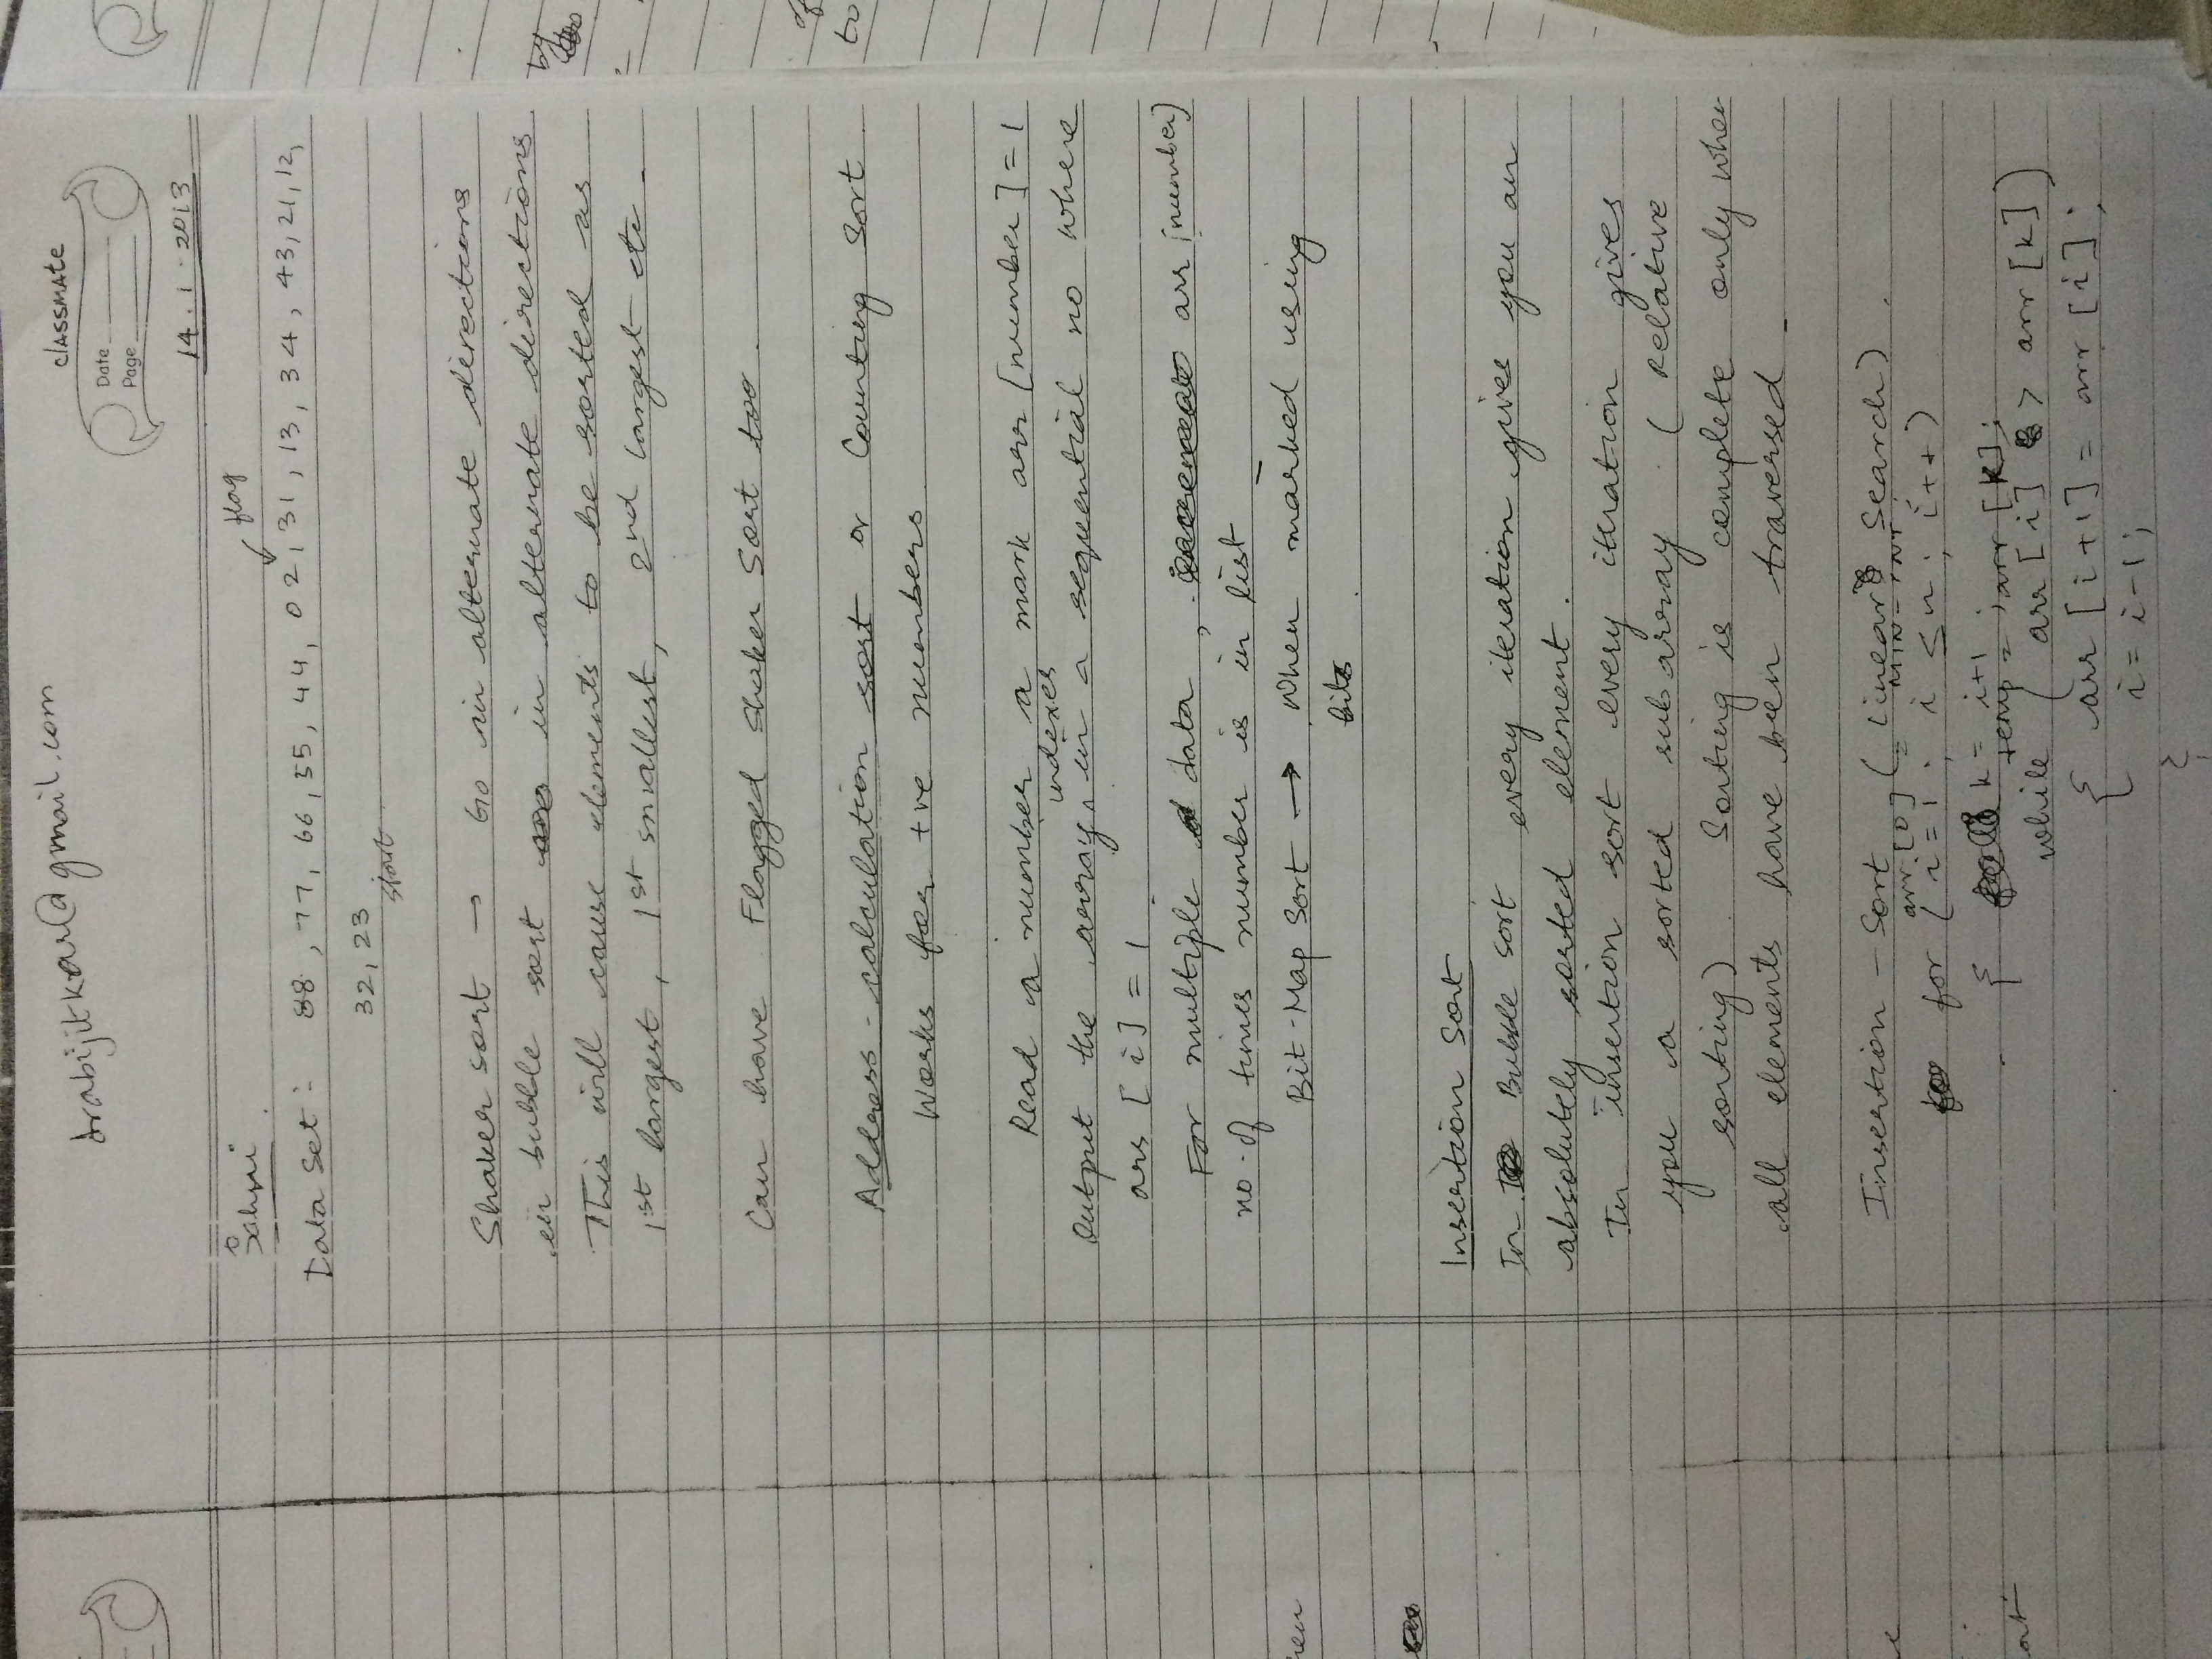 drabijitkar@gmail.com
classmate
Date
Page
14.1.2013
Sahni
flag
Data Set: 88, 77, 66, 55, 44, 02, 31, 13, 34, 43, 21, 12,
32, 23
start
Shaker sort → Go in alternate directions
in bubble sort in alternate directions.
This will cause elements to be sorted as
1st largest, 1st smallest, 2nd largest etc.
Can have Flagged Shaker Sort too.
Address-calculation sort or Counting Sort.
Works for +ve numbers
Read a number a mark arr [number] = 1
indexes
Output the array in a sequential no where
arr [i] = 1.
For multiple data, arr [number]
no. of times number is in list
Bit-Map Sort → When marked using
bits.
Insertion Sort
In Bubble Sort every iteration gives you an
absolutely sorted element.
In insertion sort every iteration gives
you a sorted subarray. (Relative
sorting). Sorting is complete only when
all elements have been traversed.
Insertion-Sort (Linear Search).
arr[0] = MIN-INT;
for (i=1; i ≤n; i++)
{ k = i+1;
temp = arr [k];
while (arr [i] > arr [k])
{ arr [i+1] = arr [i];
i = i-1;
}
by
of
to